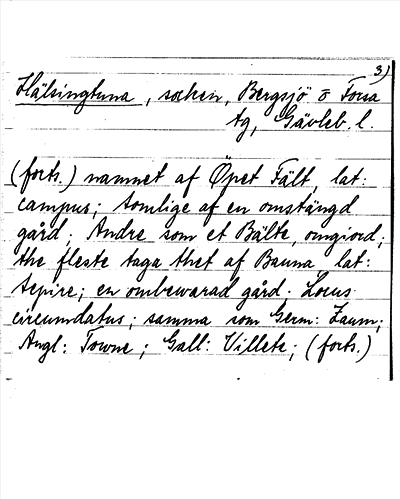 3)
Hälsingtuna, socken, Bergsjö o Forsa
tg, Gävleb. l.
(forts.) namnet af Öpet Fält, lat:
campus; somlige af en omstängd
gård; Andre som et Bälte, omgiord;
the fleste taga thet af Bauna lat:
sepire; en ombewarad gård. Locus
circumdatus; samma som Germ: Zaum;
Angl: Towne; Gall: Villete; (forts.)